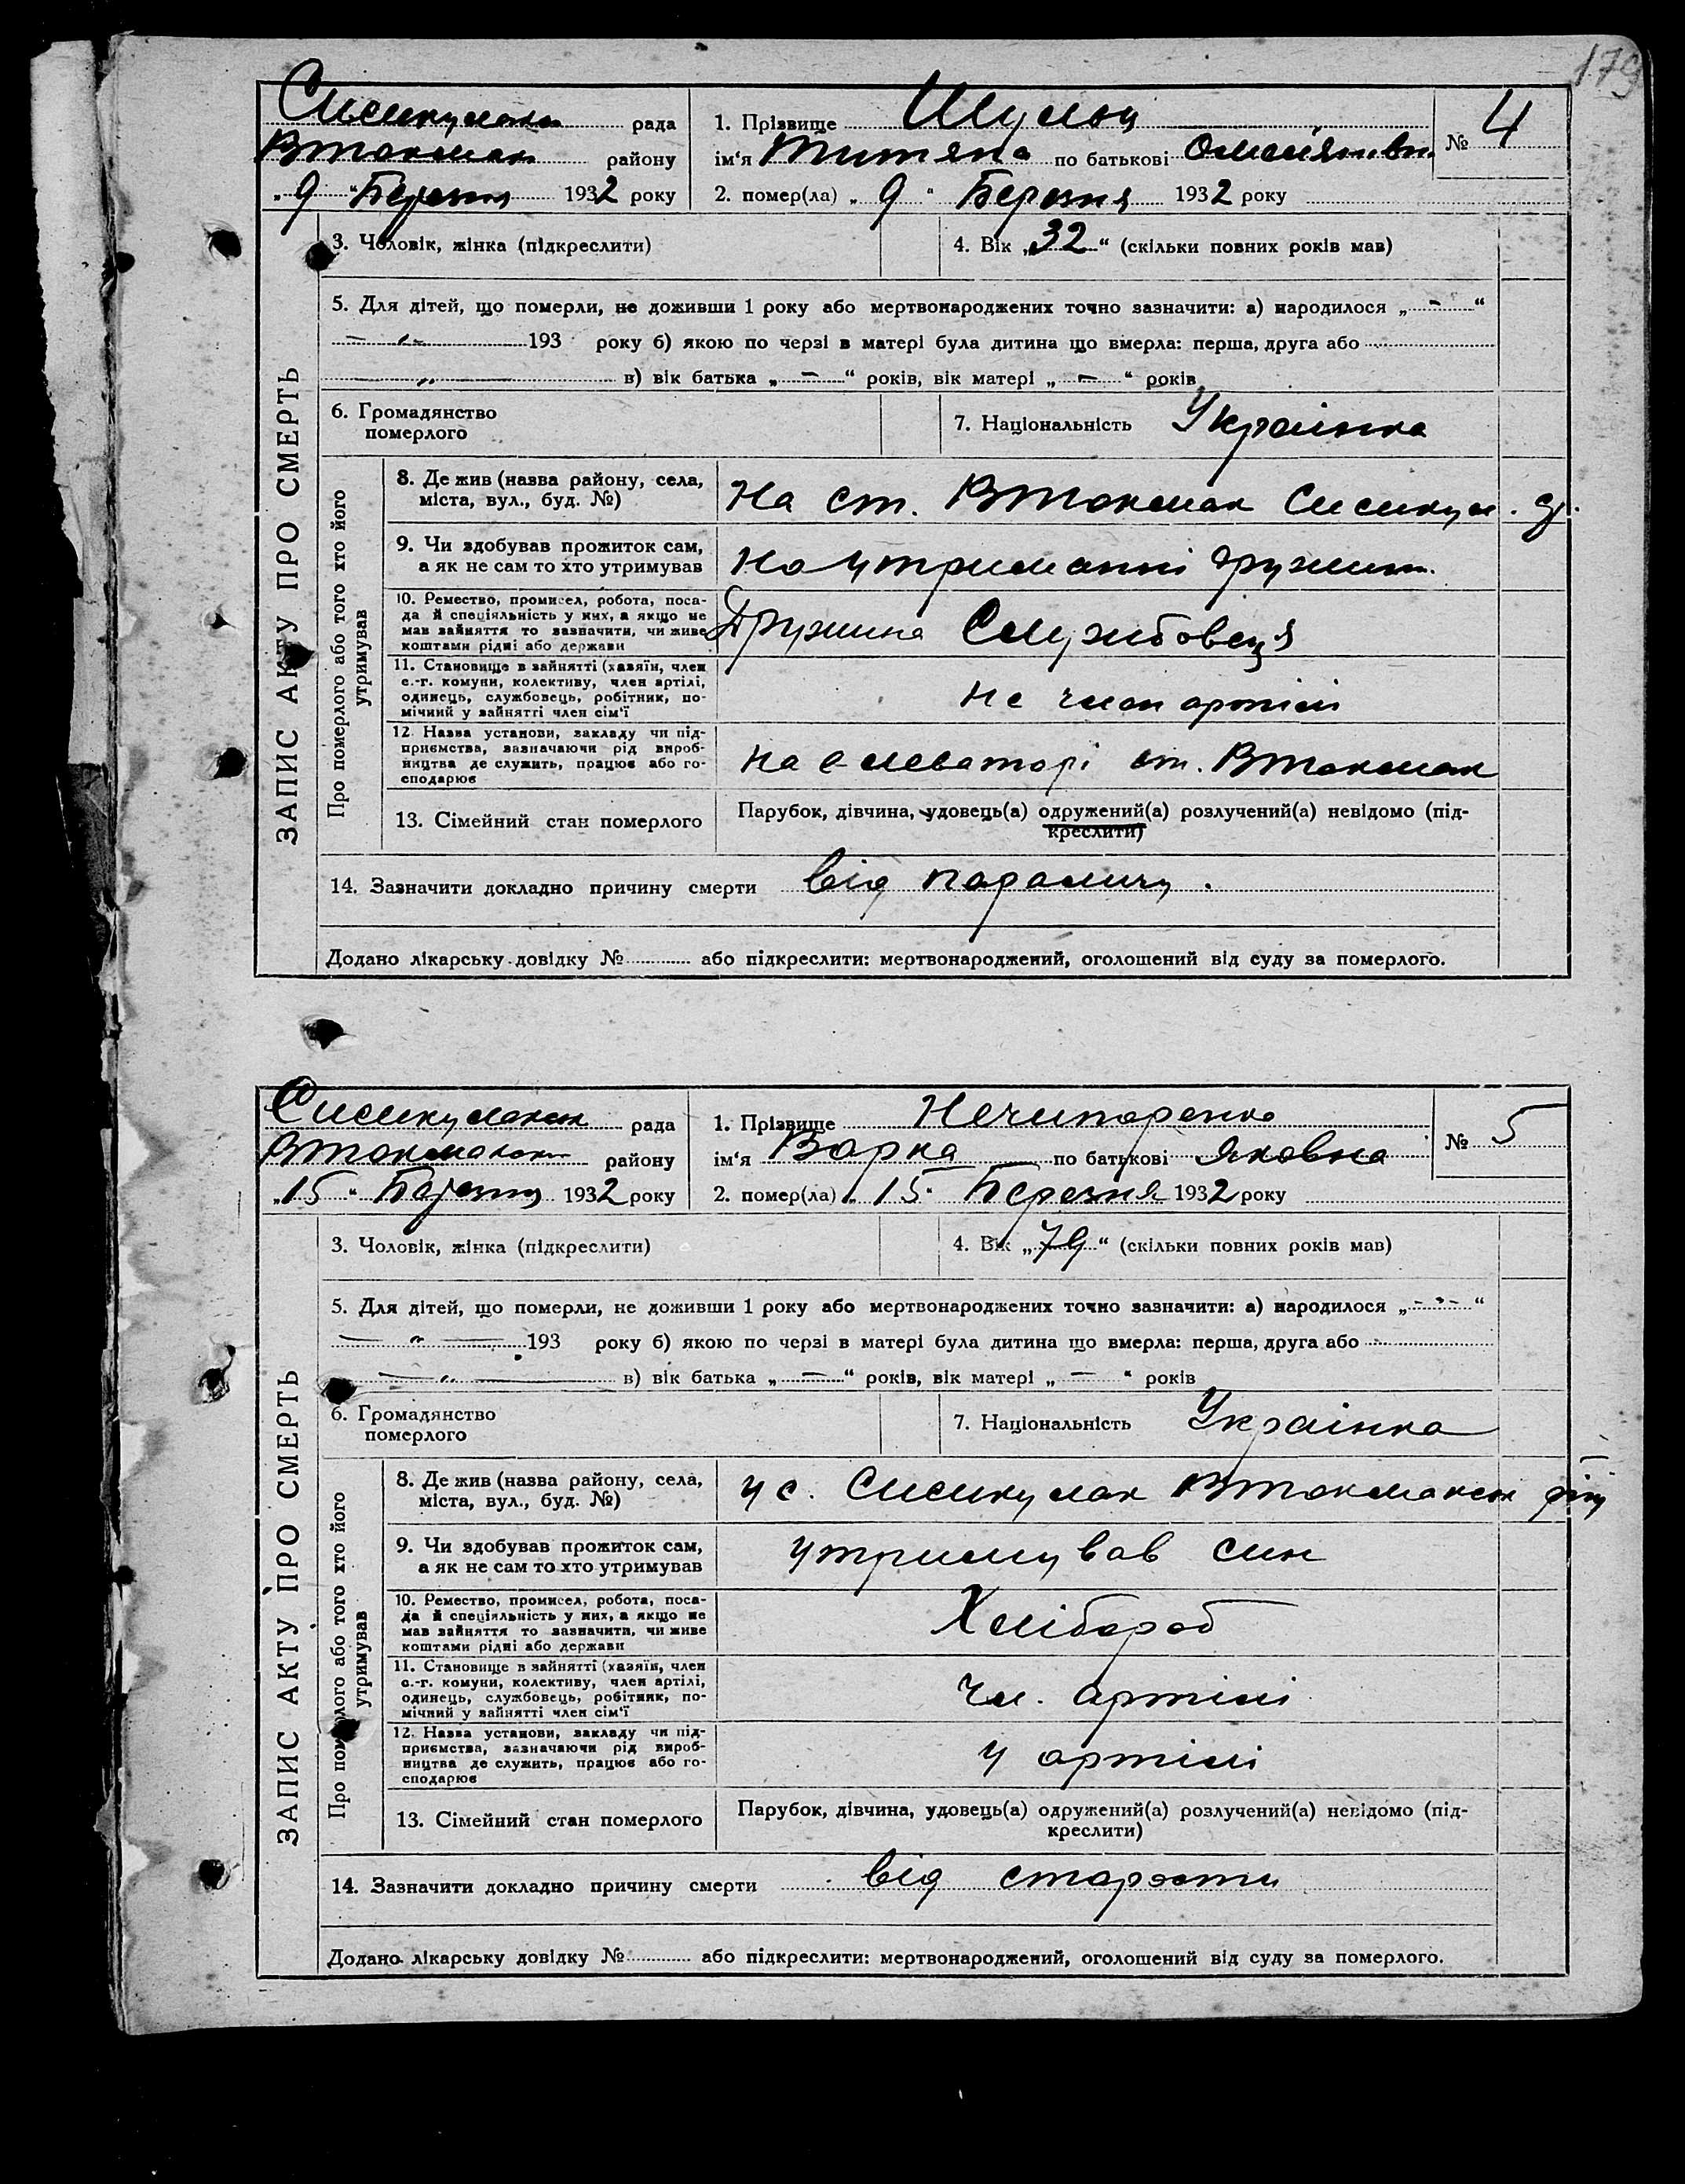 179
Сисикулакська рада
1. Прізвище Шульц
№ 4
ВТокмак району
ім‘я Титяна по батькові
„9“ Березня 1932 року
2. помер(ла) „9“ Березня 1932 року
ЗАПИС АКТУ ПРО СМЕРТЬ
3. Чоловік, жінка (підкреслити)
4. Вік „32“ (скільки повних років мав)
5. Для дітей, що померли, не доживши 1 року або мертвонароджених точно зазначити: а) народилося „-“
— „ — 193 року б) якою по черзі в матері була дитина що вмерла: перша, друга або
— „ — в) вік батька „—“ років, вік матері „—“ років
6. Громадянство
померлого
7. Національність Українка
Про померлого або того хто його
утримував
8. Де жив (назва району, села,
міста, вул., буд. №)
На ст. ВТокмак Сисикул.
9. Чи здобував прожиток сам,
а як не сам то хто утримував
На утриманні
10. Ремество, промисел, робота, поса-
да й спеціяльність у них, а якщо не
мав зайняття то зазначити, чи живе
коштами рідні або держави
Дружина Службовеця
11. Становище в зайнятті (хазяїн, член
с.-г. комуни, колективу, член артілі,
одинець, службовець, робітник, по-
мічний у зайнятті член сім‘ї
не член артілі
12. Назва установи, закладу чи під-
приємства, зазначаючи рід вироб-
ництва де служить, працює або го-
сподарює
на елеваторі ст. ВТокмак
13. Сімейний стан померлого
Парубок, дівчина, удовець(а) одружений(а) розлучений(а) невідомо (під-
креслити)
14. Зазначити докладно причину смерти від параличу.
Додано лікарську довідку № або підкреслити: мертвонароджений, оголошений від суду за померлого.
Сисикулакськ рада
1. Прізвище Нечипоренко
№ 5
ВТокмакськ району
ім‘я Варка по батькові Яковна
„15“ Березня 1932 року
2. помер(ла) „15“ Березня 1932 року
ЗАПИС АКТУ ПРО СМЕРТЬ
3. Чоловік, жінка (підкреслити)
4. Вік „79“ (скільки повних років мав)
5. Для дітей, що померли, не доживши 1 року або мертвонароджених точно зазначити: а) народилося „-“
— „ — 193 року б) якою по черзі в матері була дитина що вмерла: перша, друга або
— „ — в) вік батька „—“ років, вік матері „—“ років
6. Громадянство
померлого
7. Національність Українка
Про померлого або того хто його
утримував
8. Де жив (назва району, села,
міста, вул., буд. №)
у с. Сисикулак ВТокмакськ
9. Чи здобував прожиток сам,
а як не сам то хто утримував
утримував син
10. Ремество, промисел, робота, поса-
да й спеціяльність у них, а якщо не
мав зайняття то зазначити, чи живе
коштами рідні або держави
Хлібороб
11. Становище в зайнятті (хазяїн, член
с.-г. комуни, колективу, член артілі,
одинець, службовець, робітник, по-
мічний у зайнятті член сім‘ї
чл. артілі
12. Назва установи, закладу чи під-
приємства, зазначаючи рід вироб-
ництва де служить, працює або го-
сподарює
у артілі
13. Сімейний стан померлого
Парубок, дівчина, удовець(а) одружений(а) розлучений(а) невідомо (під-
креслити)
14. Зазначити докладно причину смерти від старости
Додано лікарську довідку № або підкреслити: мертвонароджений, оголошений від суду за померлого.